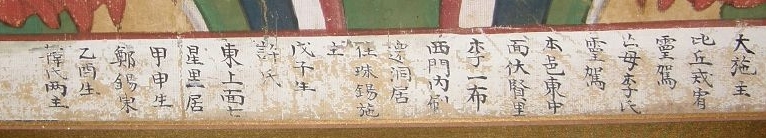 大施主
比丘戎宥
靈駕
亡母李氏
靈駕
本邑東中
面伏賢里
李一布
西門內
邊洞居
住珠錫施
主
許氏
戊子生
東上面七
星里居
鄭錫東
甲申生
乙酉生
氏兩主